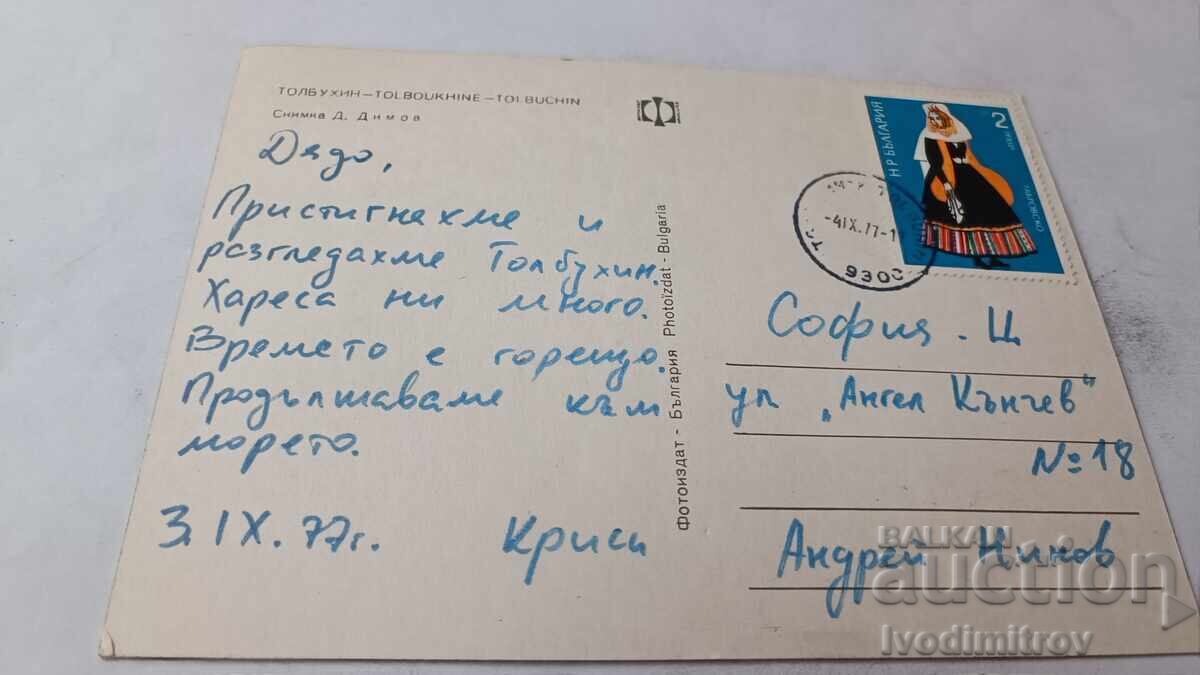 ТОЛБУХИН—TOLBOUKHINE—TOLBUCHIN
Снимка Д. Димов
Дядо,
Пристигнахме и
разгледахме Толбухин.
Хареса ни много.
Времето е горещо.
Продължаваме към
морето.
3.IX.77г. Криси
Фотоиздат - България Photoïzdat - Bulgaria
НР БЪЛГАРИЯ
2
-4IX.77-1
9300
София - Ц
ул "Ангел Кънчев"
№ 18
Андрей Нинов
BALKAN
auction
Ivodimitrov